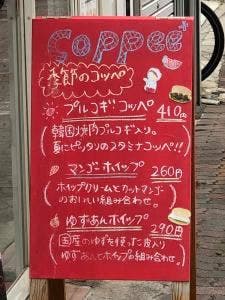 Coppee+
季節のコッペ
プルコギコッペ 410円
韓国焼肉プルコギ入り。
夏にピッタリのスタミナコッペ!!
マンゴーホイップ 260円
ホイップクリームとカットマンゴー
のおいしい組み合わせ。
ゆずあんホイップ 290円
国産のゆずを使った皮入り
ゆずあんとホイップの組み合わせ。